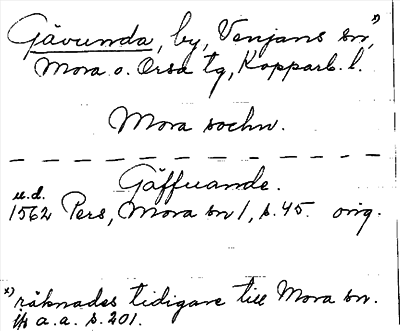 Gävunda, by, Venjans sn, x)
Mora o. Orsa tg, Kopparb. l.
Mora sochn.
Gäffuande.
u.d.
1562 Pers, Mora sn 1, s. 45. orig.
x) räknades tidigare till Mora sn.
jfr a.a. s. 201.